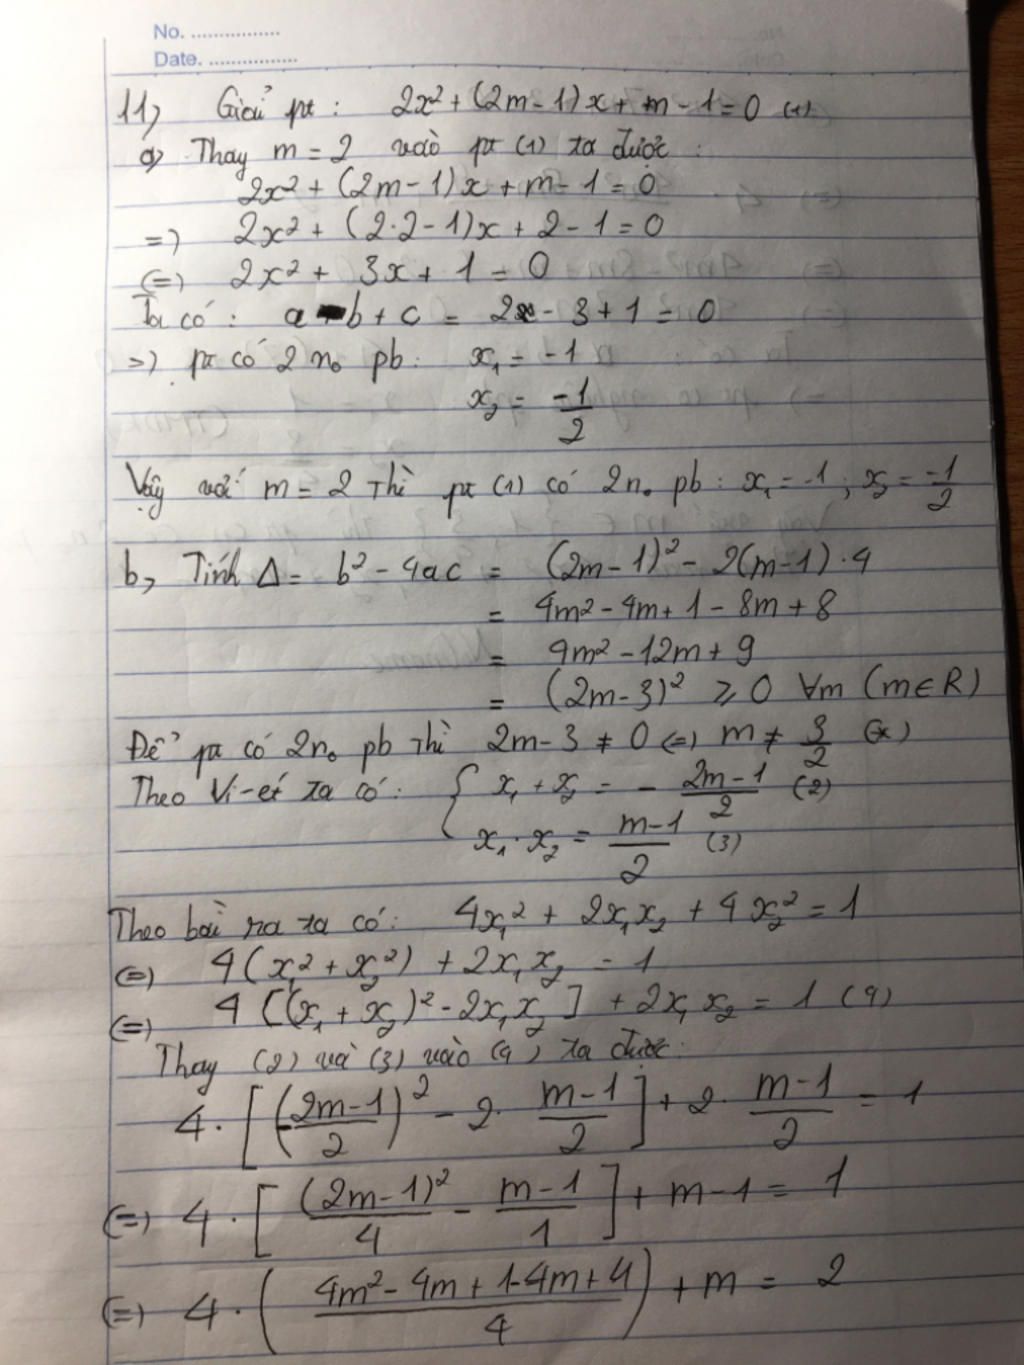 No. ................
Date. ................
11, Giải pt : 2x² + (2m - 1)x + m - 1 = 0 (1)
a, Thay m = 2 vào pt (1) ta được :
2x² + (2m - 1)x + m - 1 = 0
=> 2x² + (2·2 - 1)x + 2 - 1 = 0
(=) 2x² + 3x + 1 = 0
Ta có : a - b + c = 2 - 3 + 1 = 0
=> pt có 2 n₀ pb : x₁ = -1
x₂ = -1/2
Vậy với m = 2 thì pt (1) có 2n₀ pb : x₁ = -1 ; x₂ = -1/2
b, Tính Δ = b² - 4ac = (2m - 1)² - 2(m - 1) · 4
= 4m² - 4m + 1 - 8m + 8
= 4m² - 12m + 9
= (2m - 3)² ⩾ 0 ∀m (m ∈ R)
Để pt có 2n₀ pb thì 2m - 3 ≠ 0 (=) m ≠ 3/2 (*)
Theo Vi-ét ta có : { x₁ + x₂ = - (2m - 1)/2 (2)
x₁ · x₂ = (m - 1)/2 (3)
Theo bài ra ta có : 4x₁² + 2x₁x₂ + 4x₂² = 1
(=) 4(x₁² + x₂²) + 2x₁x₂ = 1
(=) 4[(x₁ + x₂)² - 2x₁x₂] + 2x₁x₂ = 1 (4)
Thay (2) và (3) vào (4) ta được :
4 · [(-(2m - 1)/2)² - 2 · (m - 1)/2] + 2 · (m - 1)/2 = 1
(=) 4 · [(2m - 1)²/4 - (m - 1)/1] + m - 1 = 1
(=) 4 · ((4m² - 4m + 1 - 4m + 4)/4) + m = 2